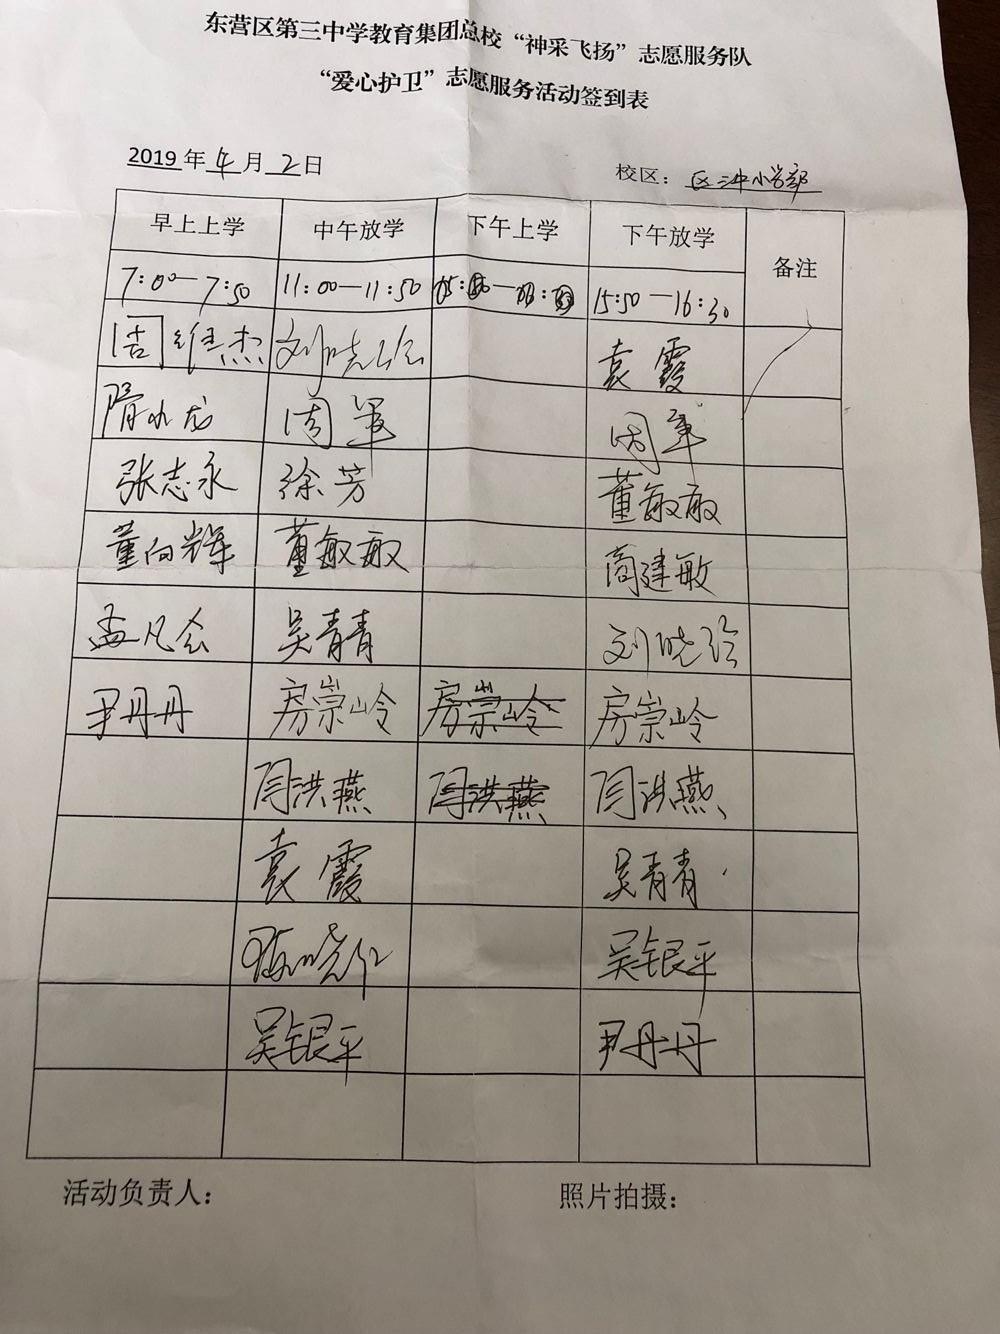 东营区第三中学教育集团总校“神采飞扬”志愿服务队
“爱心护卫”志愿服务活动签到表
2019年4月2日 校区：区三中小学部
早上上学 中午放学 下午上学 下午放学 备注
7:00—7:50 11:00—11:50 15:50—16:30
周维杰 刘晓玲 袁霞
隋永龙 周军 周军
张志永 徐芳 董敏敏
董向辉 董敏敏 商建敏
孟凡会 吴青青 刘晓玲
尹丹丹 房崇岭 房崇岭 房崇岭
闫洪燕 闫洪燕 闫洪燕
袁霞 吴青青
吴银平
吴银平 尹丹丹
活动负责人： 照片拍摄：